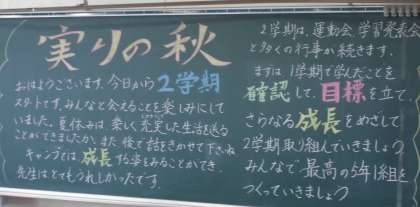 実りの秋
おはようございます。今日から2学期
スタートです。みんなと会えることを楽しみにして
いました。夏休みは、楽しく充実した生活を送る
ことができましたか。また後で話をきかせて下さいね
キャンプでは、成長する姿をみることができ、
先生はとてもうれしかったです。
2学期は、運動会、学習発表会
と多くの行事が続きます。
まずは、1学期で学んだことを
確認して、目標を立て
さらなる成長をめざして
2学期取り組んでいきましょう
みんなで最高の5年1組を
つくっていきましょう